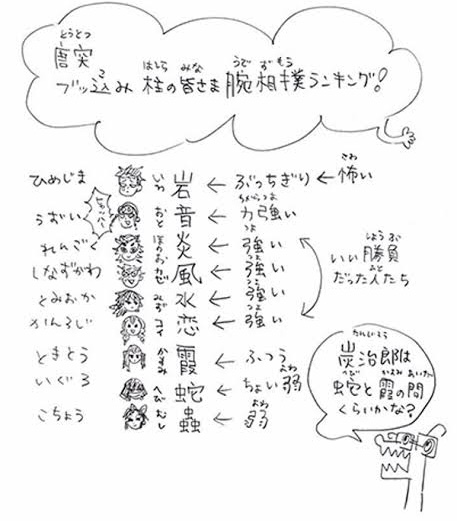 唐突
とうとつ
ブッ込み 柱の皆さま 腕相撲ランキング!
こ はしら みな うでずもう
ひめじま いわ 岩 ← ぶっちぎり ← 怖い
こわ
うずい おと 音 ← 力強い
ちからづよ
れんごく ほのお 炎 ← 強い
つよ
しなずがわ かぜ 風 ← 強い
つよ
とみおか みず 水 ← 強い
つよ
かんろじ コイ 恋 ← 強い
つよ
いい勝負
しょうぶ
だった人たち
ときとう かすみ 霞 ← ふつう
いぐろ へび 蛇 ← ちょい弱
よわ
こちょう むし 蟲 ← 弱
よわ
たんじろう
炭治郎は
へび かすみ あいだ
蛇と霞の間
くらいかな?